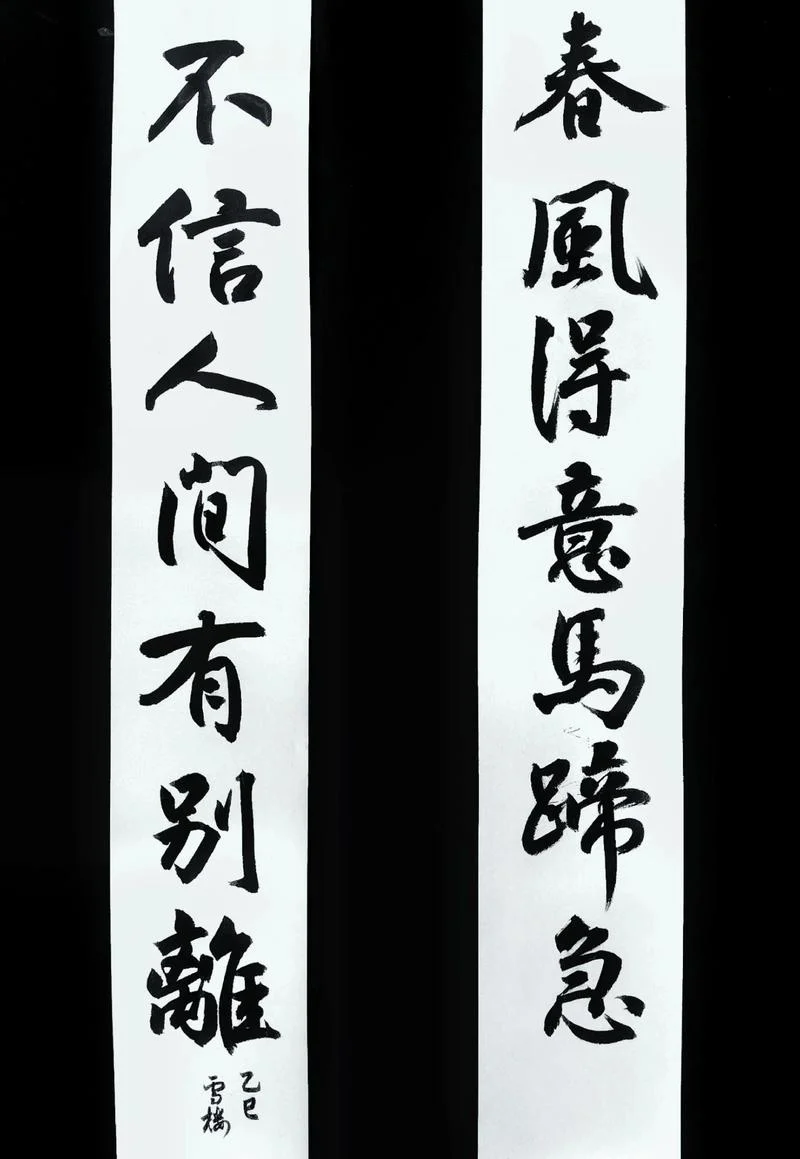 春風得意馬蹄急
不信人間有别離
乙巳
雪樓